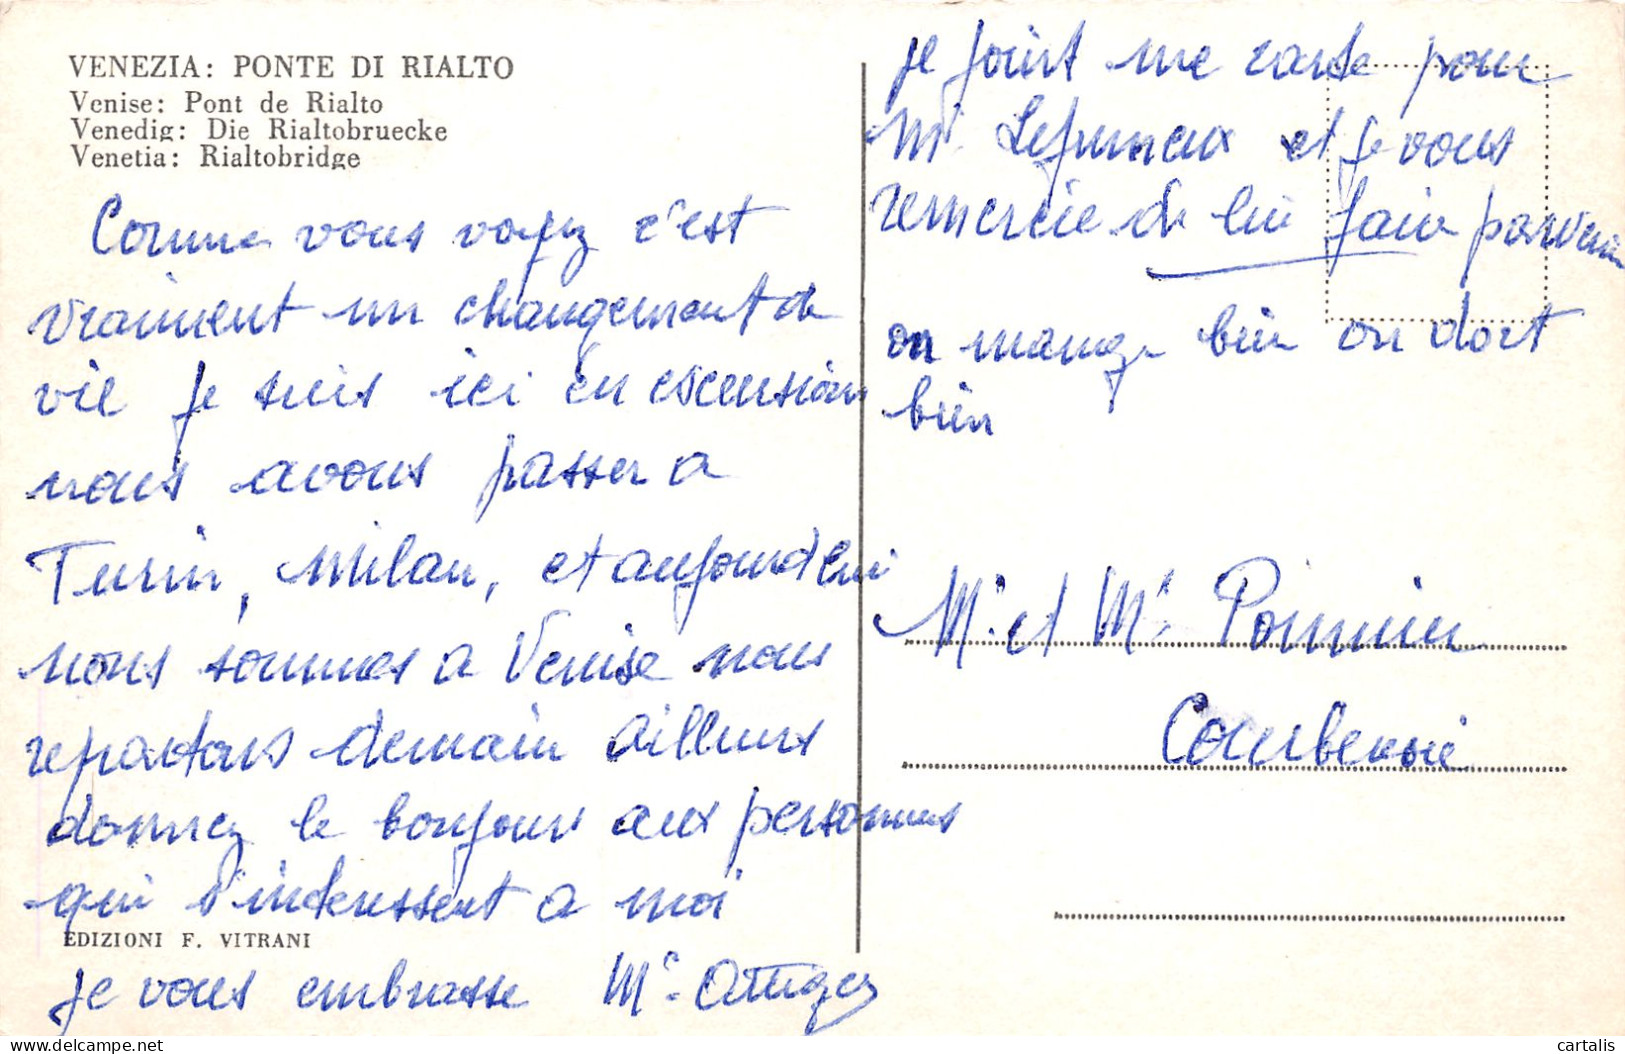 VENEZIA: PONTE DI RIALTO
Venise: Pont de Rialto
Venedig: Die Rialtobruecke
Venetia: Rialtobridge
Comme vous voyez c'est
vraiment un changement de
vie je suis ici en escension
nous avous passer a
Turin, Milan, et aujourd'hui
nous sommes a Venise nous
repartons demain ailleurs
donnez le bonjours aux personnes
qui s'interessent a moi
EDIZIONI F. VITRANI
je vous embrasse Me
je joint une carte pour
Mr et je vous
remercie de lui faire parvenir
on mange bien on dort
bien
Mr et Me
Courbevoie
cartalis